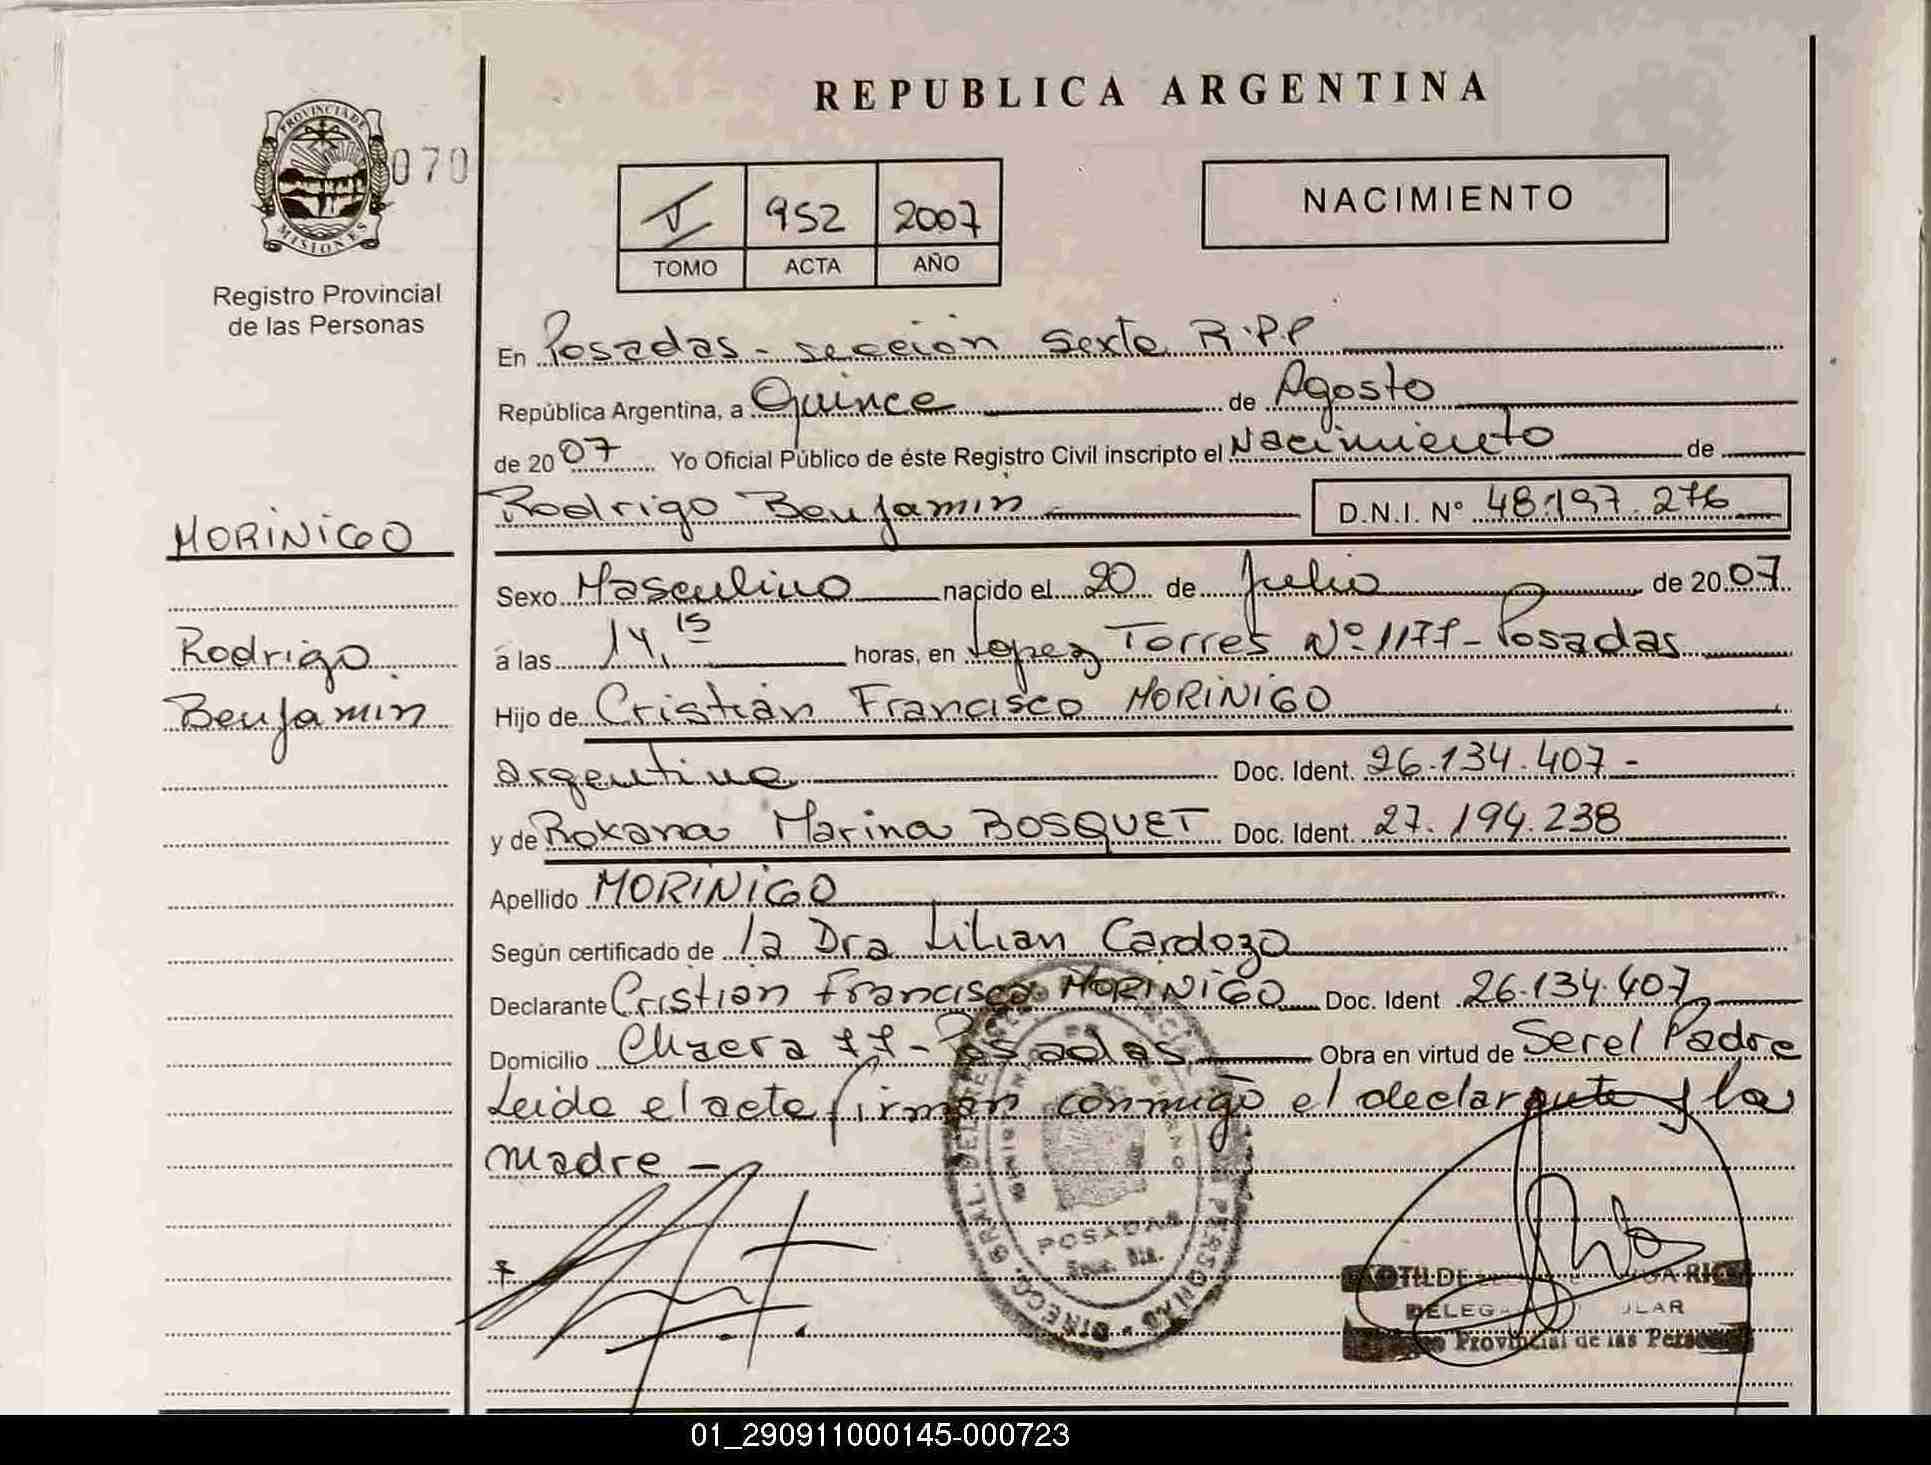 REPUBLICA ARGENTINA
PROVINCIA DE
MISIONES
070
Registro Provincial
de las Personas
952 2007
TOMO ACTA AÑO
NACIMIENTO
En Posadas - sección Sexta R.P.P
República Argentina, a Quince de Agosto
de 2007 Yo Oficial Público de éste Registro Civil inscripto el Nacimiento de
Rodrigo Benjamin D.N.I. Nº 48.197.276
MORINIGO
Rodrigo
Benjamin
Sexo Masculino nacido el 20 de Julio de 2007
a las 14,15 horas, en Lopez Torres Nº 1177 - Posadas
Hijo de Cristian Francisco MORINIGO
argentino Doc. Ident. 26.134.407 -
y de Roxana Marina BOSQUET Doc. Ident. 27.194.238
Apellido MORINIGO
Según certificado de la Dra Lilian Cardozo
Declarante Cristian Francisco MORINIGO Doc. Ident 26.134.407
Domicilio Chacra 77 - Posadas Obra en virtud de Ser el Padre
Leida el acta firman conmigo el declarante y la
madre -
POSADAS
Provincial de las
01_290911000145-000723